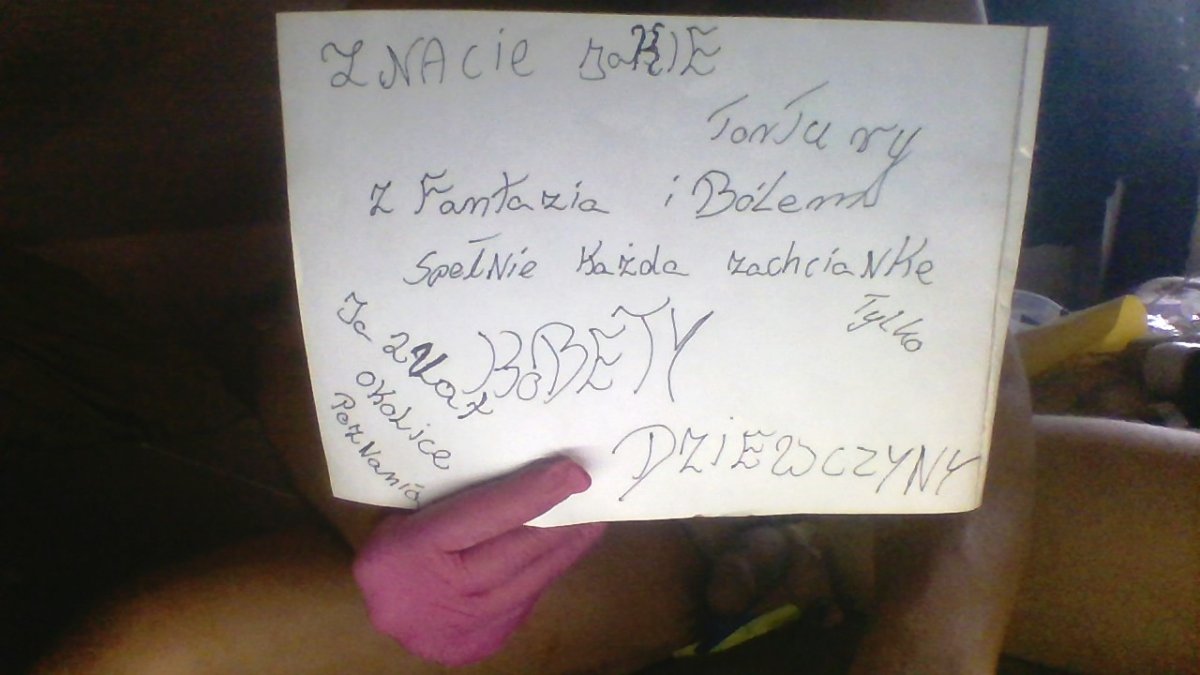 ZNACIE JAKIE
TORTURY
Z FANTAZIA i BÓLEM
SPEŁNIE KAŻDA ZACHCIANKE
TYLKO
KOBETY
DZIEWCZYNY
Ja 2 lat
OKOLICE
POZNANIA